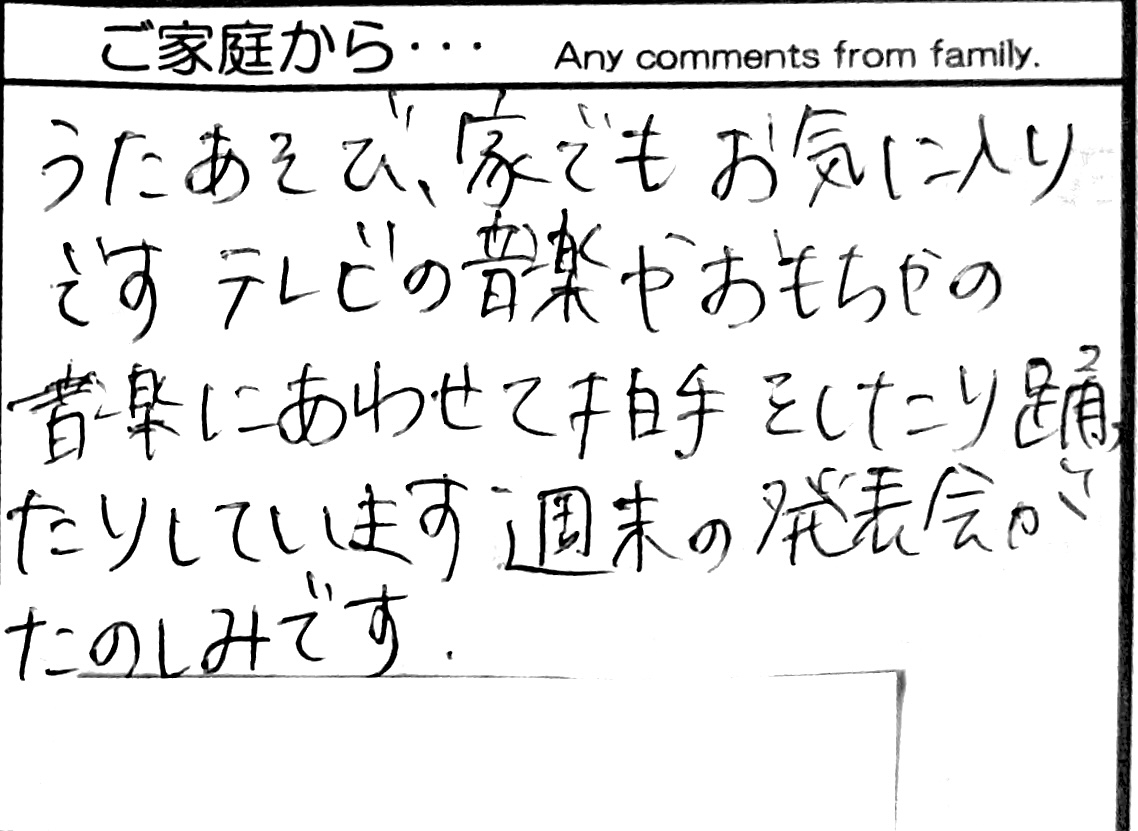 ご家庭から・・・ Any comments from family.
うたあそび、家でもお気に入り
です テレビの音楽やおもちゃの
音楽にあわせて拍手をしたり踊っ
たりしています 週末の発表会が
たのしみです.